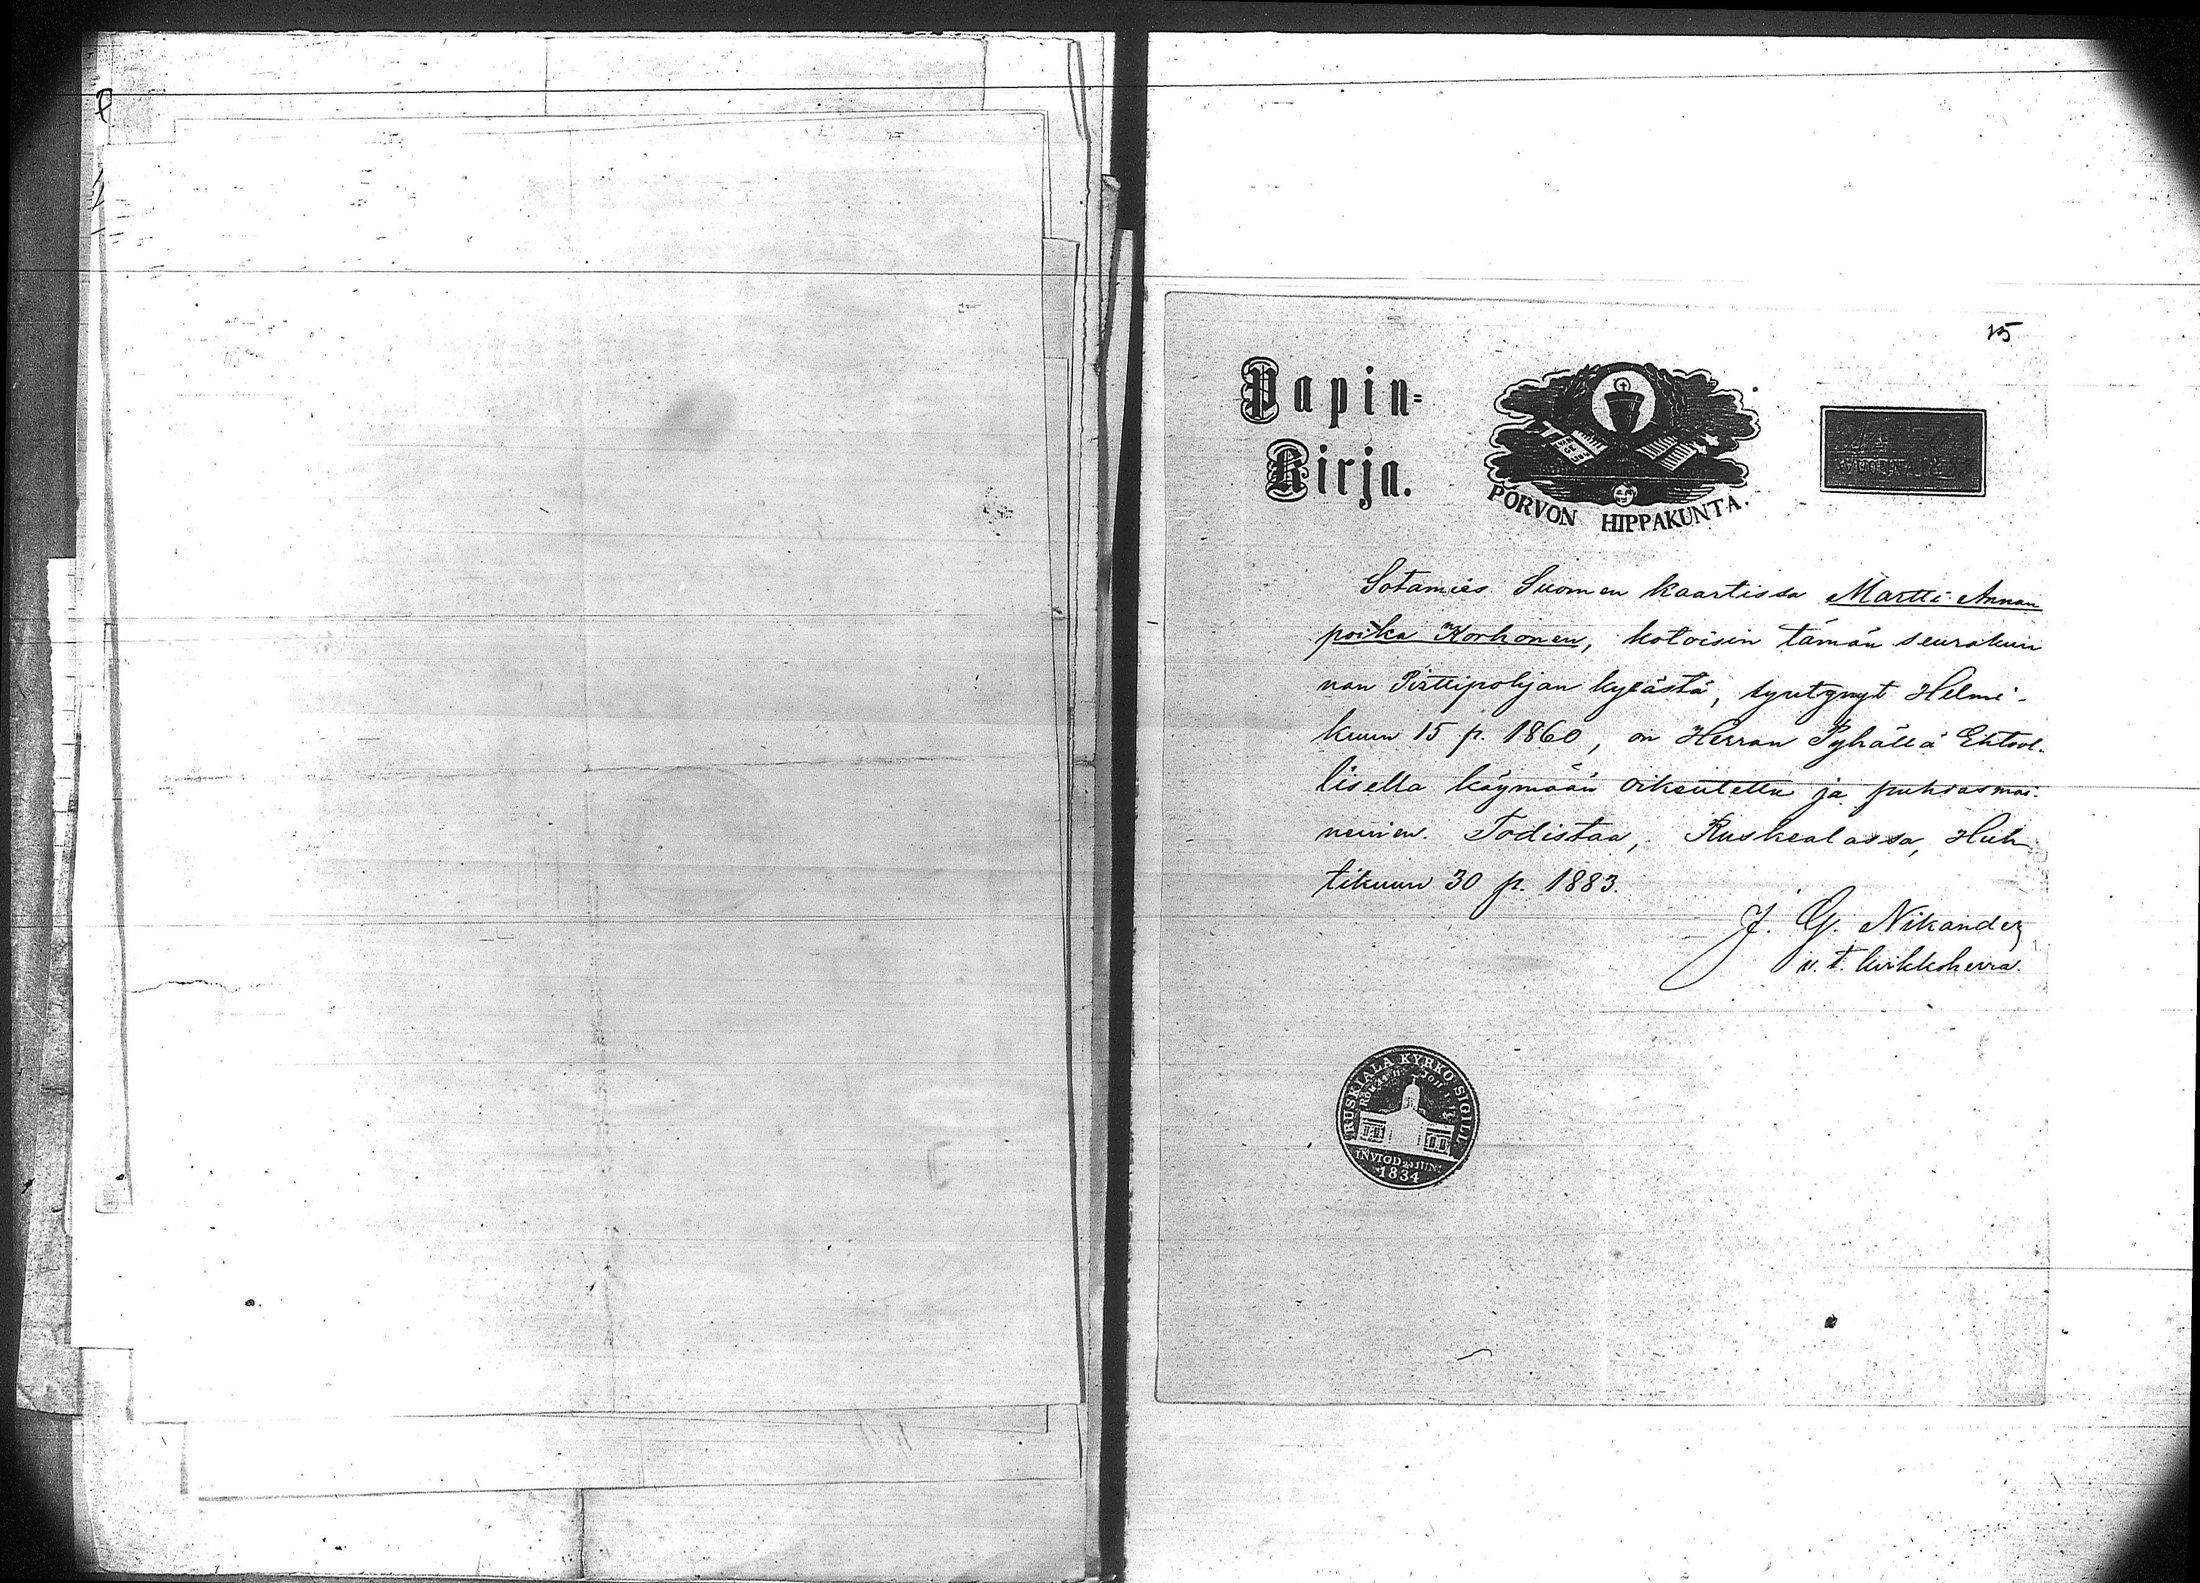 15
Papin=
Kirja.
PORVON HIPPAKUNTA.
Sotamies Suomen kaartissa Martti Annan
poika Korhonen, kotoisin tämän seurakun
nan Pirttipohjan kylästä, syntynyt Helmi-
kuun 15 p. 1860, on Herran Pyhällä Ehtool-
lisella käymään oikeutettu ja puhdasmai-
neinen. Todistaa, Ruskealassa, Huh
tikuun 30 p. 1883.
J. G. Nikander
v. t. kirkkoherra.
RUSKIALA KYRKO SIGILL
INVIGD 24 JUNI
1834